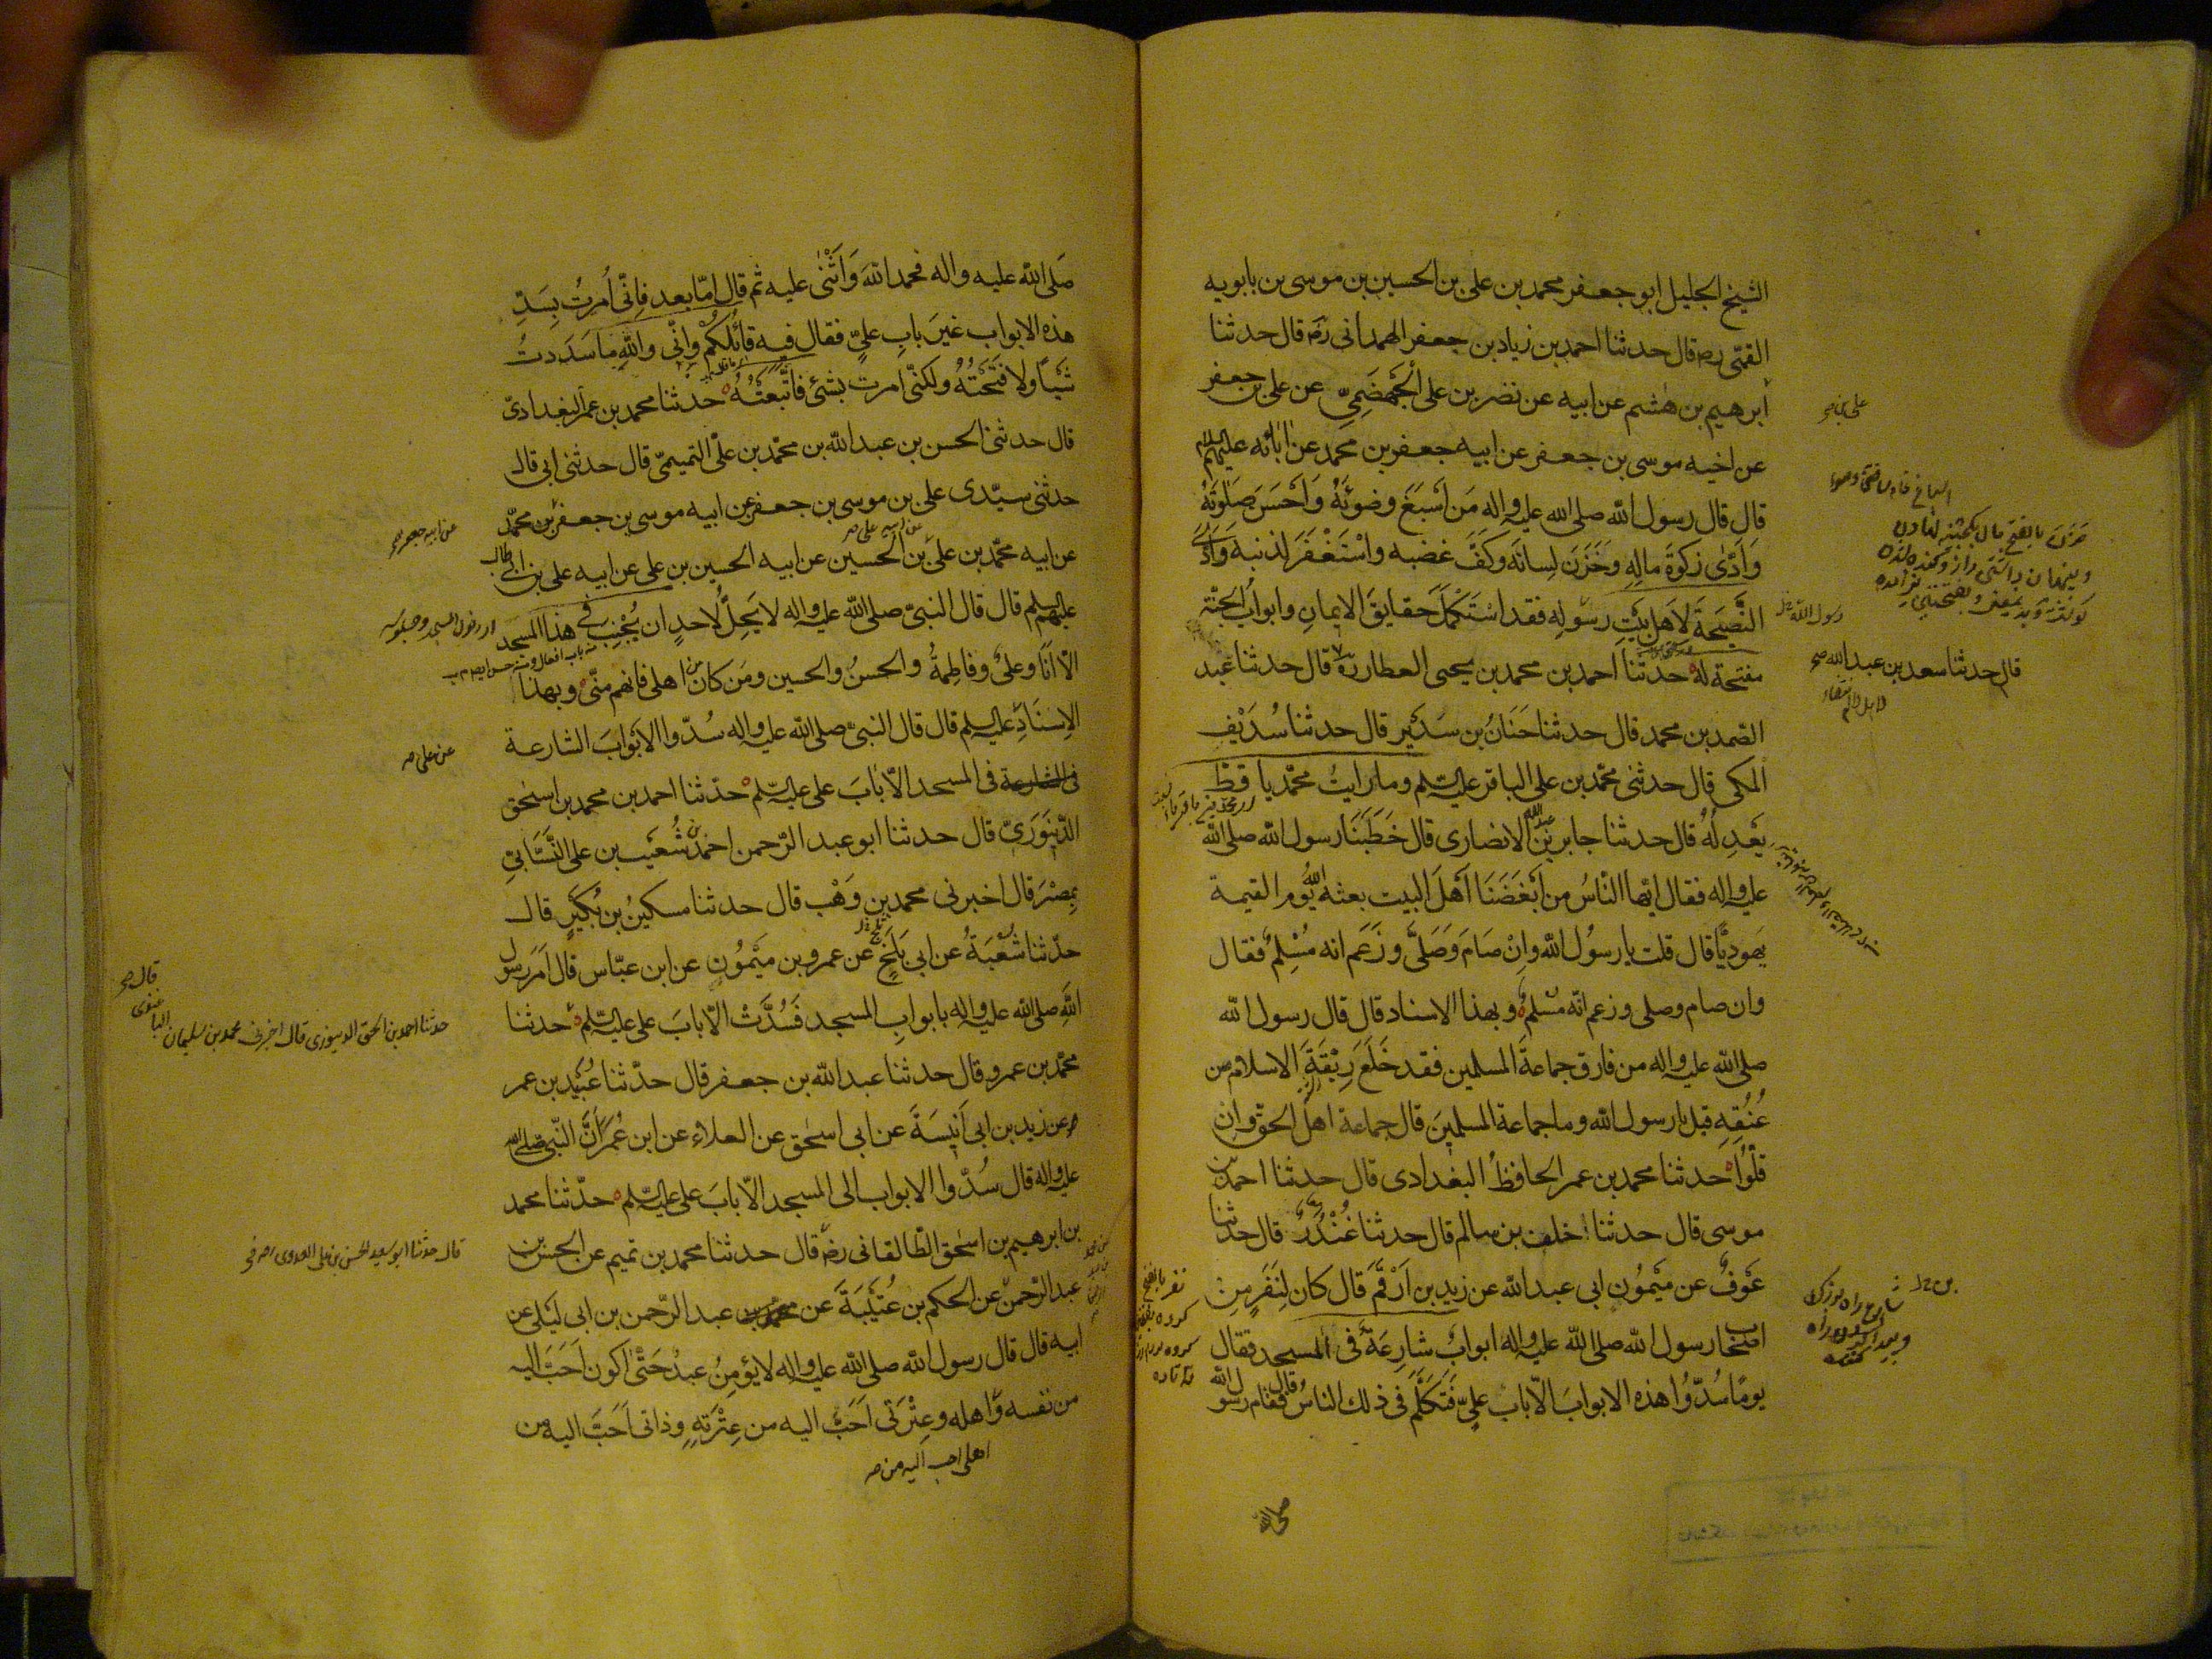 الشيخ الجليل ابو جعفر محمد بن على بن الحسين بن موسى بن بابويه
القمّى ره قال حدثنا احمد بن زياد بن جعفر الهمدانى رضه قال حدثنا
ابرهيم بن هشم عن ابيه عن نضر بن على الجَهْضَمِىِّ عن على بن جعفر
عن اخيه موسى بن جعفر عن ابيه جعفر بن محمد عن ابائه عليهم السلام
قال قال رسول الله صلى الله عليه واله مَن اَسْبَغَ وضوئَهُ وَاَحْسَنَ صَلوٰتَهُ
وَاَدّٰى زكوةَ مالِهِ وخَزَنَ لِسانَه وكَفَّ غضبه واسْتَغْفَرَ لذنبه وَاَدّٰى
النَّصيحَةَ لاَهلِ بَيْتِ رسولِه فقد اسْتَكْمَلَ حقايقَ الايمانِ وابوابُ الجنّة
مفتحة له حدثنا احمد بن محمد بن يحيى العطار ره قال حدثنا عبد
الصّمد بن محمد قال حدثنا حَنَانُ بن سَدَيْرٍ قال حدثنا سُدَيْفِ
المكى قال حدثنى محمّد بن على الباقر عليه السّلم وما رايتُ محمّديا قطّ
يَعْدِلُهُ قال حدثنا جابر بن عبدالله الانصارى قال خَطَبَنَا رسول الله صلى الله
عليه واله فقال ايّها النّاسُ من اَبْغَضَنَا اَهْلَ البيت بعثه الله يَوم القيمة
يهوديًّا قال قلت يا رسولُ الله وانْ صَامَ وَصَلّٰى وزَعَم انه مُسْلِمٌ فقال
وان صام وصلى وزعم انّه مسْلمٌ وبهذا الاسناد قال قال رسول الله
صلى الله عليه واله من فارق جماعةَ المسلمين فقد خَلَعَ رِبْقَةَ الاسلام من
عُنُقِهِ قيل يا رسول الله وما جماعة المسلمين قال جماعة اهل الحق وان
قلّوا حدثنا محمد بن عمر الحافظُ البغدادى قال حدثنا احمد بن
موسى قال حدثنا خلف بن سالم قال حدثنا غُنْدَرُ قال حدثنا
عَوفٌ عن ميمُونِ ابى عبد الله عن زيد بن اَرْقَمَ قال كان لِنَفَرٍ مِنْ
اصحاب رسول الله صلى الله عليه واله ابوابٌ شارِعَةٌ فى المسجد فقال
يومًا سُدّوا هذه الابوابَ الّا بابَ علىٍّ فَتَكَلَّمَ فى ذلك الناسُ قال فقام رسول الله
على بن صح
رسول الله
قال حدثنا سعد بن عبد الله صح
صَلى الله عليه واله فحمد اللهَ وَاَثْنٰى عليه ثم قال امّا بعد فانّى اُمِرتُ بِسَدِّ
هذه الابواب غيرَ بابِ علىٍّ فقال فيه قائلكُمْ وانّى والله ما سَدَدتُ
شَيْأً ولا فَتَحْتُهُ ولكنّى امرت بشئ فاتّبعْتُهُ حدثنا محمد بن عمر البغدادىّ
قال حدثنى الحسن بن عبد الله بن محمّد بن علىّ التميمىّ قال حدثنى ابى قال
حدثنى سيّدى على بن موسى بن جعفر عن ابيه موسى بن جعفر بن محمّد
عن ابيه محمّد بن على بن الحسين عن ابيه الحسين بن على عن ابيه على بن ابى طالب
عليهم السلم قال قال النبىّ صلى الله عليه واله لا يَحِلُّ لاَحدٍ ان يُجْنِبَ فى هذا المسجد
الّا اَنَا وعلىٌ وفاطمةُ والحسنُ والحسين ومَن كان من اهلى فانهم منّى وبهذا
الاِسنَادِ عليه السلم قال قال النبىّ صلى الله عليه واله سُدّوا الابْوابَ الشارعة
فى الشارعة فى المسجد الّا بابَ على عليه السّلم حدّثنا احمد بن محمد بن اسحٰق
الدّينَوَرىّ قال حدثنا ابو عبد الرّحمن احمد بن شُعَيب بن على النَّسَائىّ
بمصْرَ قال اخبرنى محمد بن وَهْب قال حدثنا مسكينُ بن بُكَيْرٍ قال
حدّثنا شُعْبَةُ عن ابى بَلْخٍ عن عمرو بن ميمُونٍ عن ابن عبّاس قال اَمَرَ رسول
الله صلى الله عليه واله بابوابِ المسجد فَسُدَّتْ الّا بابَ على عليه السّلم حدثنا
محمّد بن عمرو قال حدثنا عبد الله بن جعفر قال حدّثنا عُبَيْد بن عمر
عن زيد بن ابى اُنَيسَةَ عن ابى اسحٰق عن العلاء عن ابن عُمَر اَنَّ النّبى صلى الله
عليه واله قال سُدّوا الابواب الى المسجد الّا بابَ على عليه السّلم حدّثنا محمد
بن ابرهيم بن اسحٰق الطّالقانى رضه قال حدثنا محمد بن تميم عن الحسن بن
عبد الرّحمن عن الحكم بن عُتَيْبَةَ عن عبد الرّحمن بن ابى لَيْلى عن
ابيه قال قال رسول الله صلى الله عليه واله لا يؤمِنُ عبدٌ حَتّٰى اكون اَحَبَّ اليه
من نفسه واهله وعِتْرَتى اَحَبَّ اليه من عِتْرَتِهِ وذاتى اَحَبَّ اليه من
اهلى احب اليه من
عن ابيه على صح
عن ابيه جعفر صح
عن على صح
قال صح
حدثنا احمد بن اسحق الدينورى قال اخبرنى محمد بن سليمان